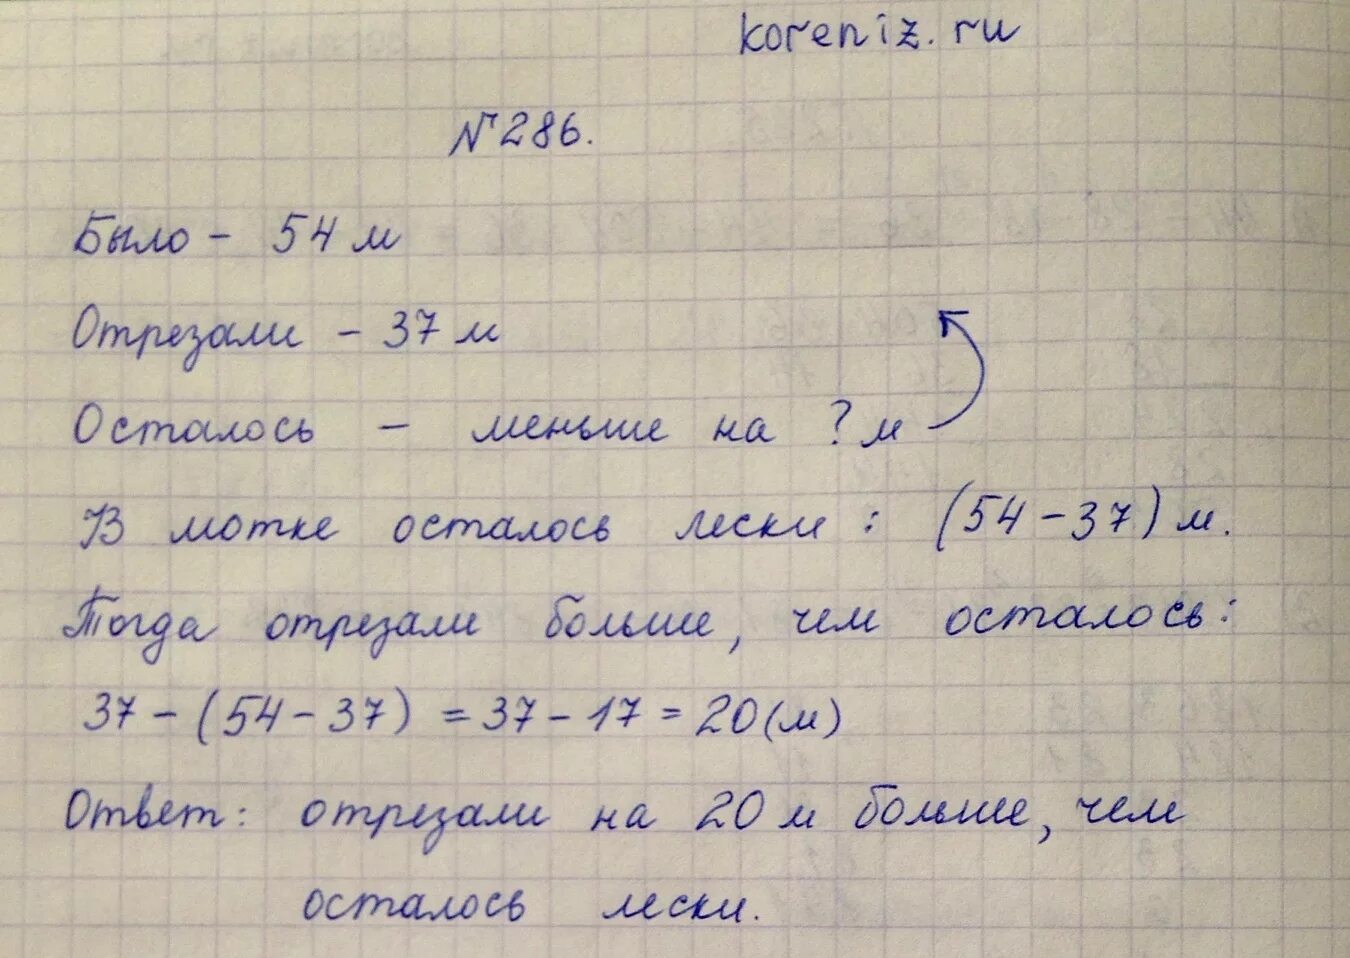 koreniz.ru
№286.
Было - 54 м
Отрезали - 37 м
Осталось - меньше на ? м
В мотке осталось лески : (54-37) м.
Тогда отрезали больше, чем осталось:
37-(54-37) = 37-17 = 20(м)
Ответ: отрезали на 20 м больше, чем
осталось лески.